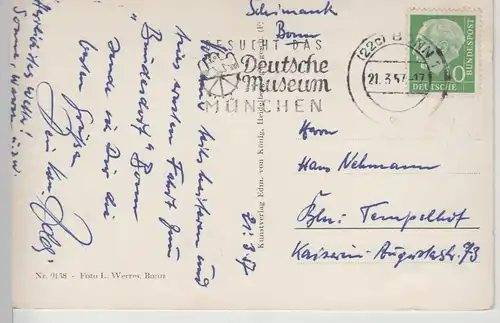 Scheimank
Bonn
BESUCHT DAS
Deutsche
Museum
MÜNCHEN
(22c) BONN 1
21. 3. 57.-17
DEUTSCHE
BUNDESPOST
10
21. 3. 57
teils heiteren und
ersten Fahrt zum
"Bundesdorf" Bonn
sende ich Dir die
besten Grüße
Dein
Herrliches Wetter!
Sonne, warm usw.
Herrn
Hans Nehmann
Bln. Tempelhof
Kaiserin-Augustastr. 73
Kunstverlag Edm. von König, Heidelberg
Nr. 9158 - Foto L. Werres, Bonn